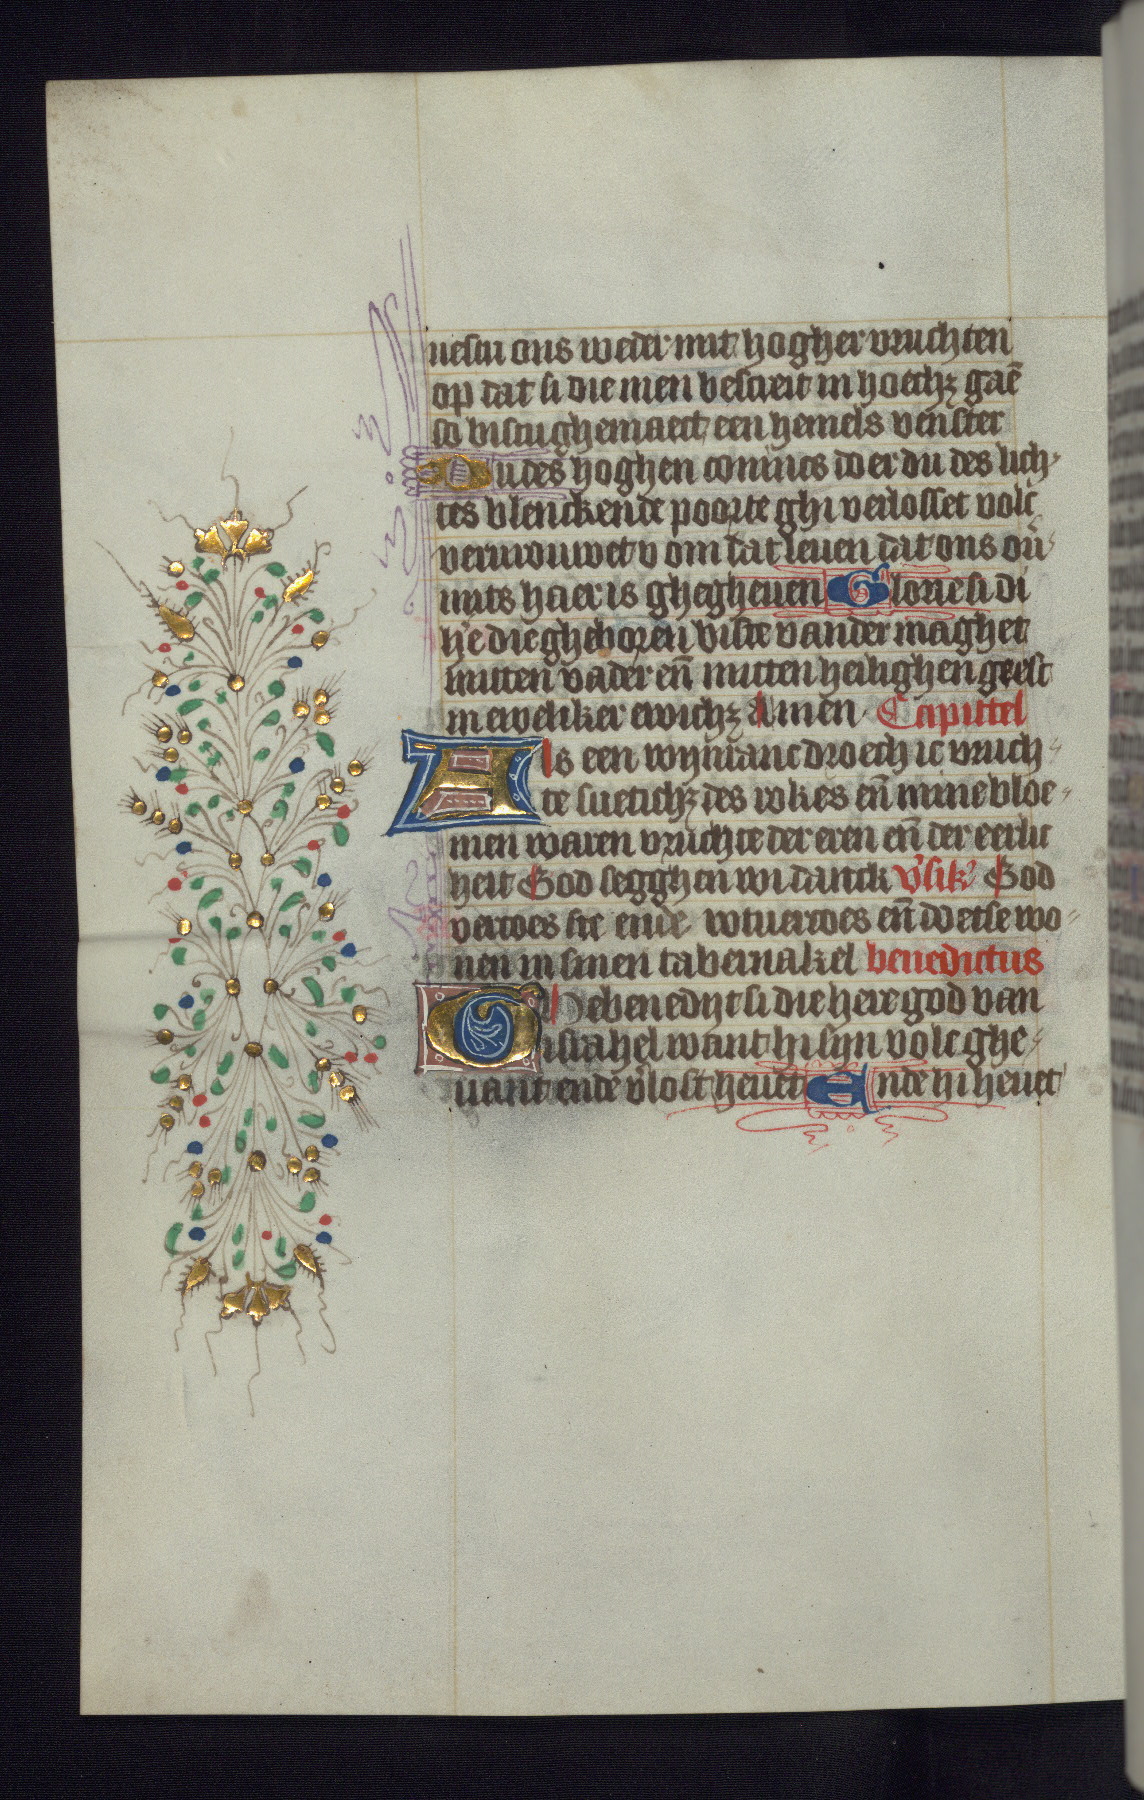 uestu ons weder mit hogher vruchten
op dat si die men bescreit in hoechz gaē
so bistu ghemaect een hemels venster
Du des hoghen conincs doer du des lich
tes blenckende poorte ghi verlosset volc
vervrouwet v om dat leuen dat ons ou̅
mits haer is ghegheuen Glorie si di
h̓e die gheboren biste vander maghet
mitten vader en̅ mitten heilighen geest
in eweliker ewichz Amen Capittel
Als een wijntanc droech ic vruch
te suetichz des rokes en̅ mine bloe
men waren vruchte der eren en̅ der eerlic
heit God segghen wi danck v̓sik̓ God
vercoes se ende wtuercoes en̅ doetse wo
nen in sinen tabernakel benedictus
Ghebenedijt si die here god van
israhel want hi sijn volc ghe
uant ende v̓lost heuet Ende hi heuet